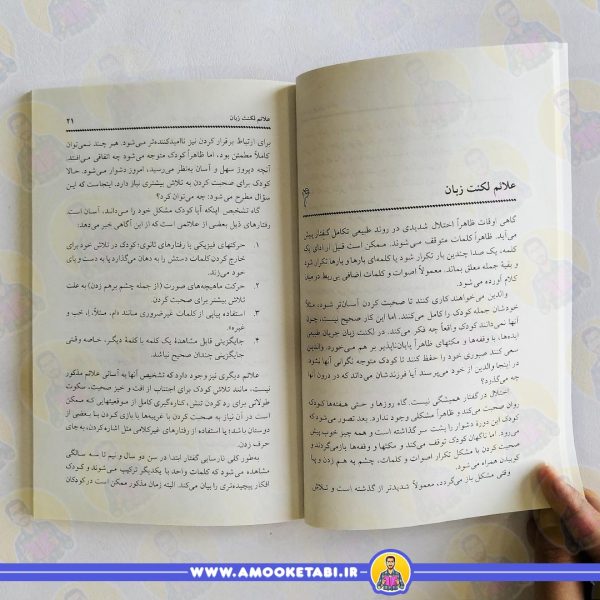 علائم لکنت زبان
گاهی اوقات ظاهراً اختلال شدیدی در روند طبیعی تکامل گفتار پیش
می‌آید. ظاهراً کلمات متوقف می‌شوند. ممکن است قبل از ادای یک
کلمه، یک صدا چندین بار تکرار شود یا کلمه‌ای بارها و بارها تکرار شود
و بقیهٔ جمله معلق بماند. معمولاً اصوات و کلمات اضافی بی‌ربط در میان
کلام آورده می‌شود.
والدین می‌خواهند کاری کنند تا صحبت کردن آسان‌تر شود، مثلاً
خودشان جمله کودک را کامل می‌کنند. اما این کار صحیح نیست، چون
آنها نمی‌دانند کودک واقعاً چه فکر می‌کند. در لکنت زبان جریان طبیعی
ایده‌ها، با وقفه‌ها و مکثهای ظاهراً پایان‌ناپذیر بر هم می‌خورد. والدین
سعی کنند صبوری خود را حفظ کنند تا کودک متوجه نگرانی آنها نشود
در اینجا والدین از خود می‌پرسند آیا فرزندشان می‌داند که در درون آنها
چه می‌گذرد؟
اختلال در گفتار همیشگی نیست. گاه روزها و حتی هفته‌ها کودک
روان صحبت می‌کند و ظاهراً مشکلی وجود ندارد. بعد تصور می‌شود که
کودک این دورهٔ دشوار را پشت سر گذاشته است و همه چیز خوب پیش
می‌رود. اما ناگهان کودک توقف می‌کند و مکثها و وقفه‌ها بازمی‌گردند و
صحبت کردن با مشکل تکرار اصوات و کلمات، چشم به هم زدن و پا
کوبیدن همراه می‌شود.
وقتی مشکل باز می‌گردد، معمولاً شدیدتر از گذشته است و تلاش
علائم لکنت زبان ۲۱
برای ارتباط برقرار کردن نیز ناامیدکننده‌تر می‌شود. هر چند نمی‌توان
کاملاً مطمئن بود، اما ظاهراً کودک متوجه می‌شود چه اتفاقی می‌افتد.
آنچه دیروز سهل و آسان به‌نظر می‌رسید، امروز دشوار می‌شود. حالا
کودک برای صحبت کردن به تلاش بیشتری نیاز دارد. اینجاست که این
سؤال مطرح می‌شود: چه می‌توان کرد؟
گاه تشخیص اینکه آیا کودک مشکل خود را می‌داند، آسان است.
رفتارهای ذیل بعضی از علائمی است که از این آگاهی خبر می‌دهد:
۱. حرکتهای فیزیکی یا رفتارهای ثانوی: کودک در تلاش خود برای
خارج کردن کلمات دستش را به دهان می‌گذارد یا به دست و پای
خود می‌زند.
۲. حرکت ماهیچه‌های صورت (از جمله چشم برهم زدن) به علت
تلاش بیشتر برای صحبت کردن.
۳. استفاده پیاپی از کلمات غیرضروری مانند «ام، مثلاً، ا، خب و
غیره».
۴. جایگزینی قابل مشاهدهٔ یک کلمه با کلمهٔ دیگر، خاصه وقتی
جایگزینی چندان صحیح نباشد.
علائم دیگری نیز وجود دارد که تشخیص آنها به آسانی علائم مذکور
نیست، مانند تلاش کودک برای اجتناب از افت و خیز صحبت، سکوت
طولانی برای رد کردن تنش، کناره‌گیری کامل از موقعیتهایی که ممکن
است در آن نیاز به صحبت کردن با غریبه‌ها یا بازی کردن با بعضی از
دوستان باشد؛ یا استفاده از رفتارهای غیرکلامی مثل اشاره کردن، به‌جای
حرف زدن.
به‌طور کلی نارسایی گفتار ابتدا در سن دو سال و نیم تا سه سالگی
مشاهده می‌شود که کلمات واحد با یکدیگر ترکیب می‌شوند و کودک
افکار پیچیده‌تری را بیان می‌کند. البته زمان مذکور ممکن است در کودکان
WWW.AMOOKETABI.IR